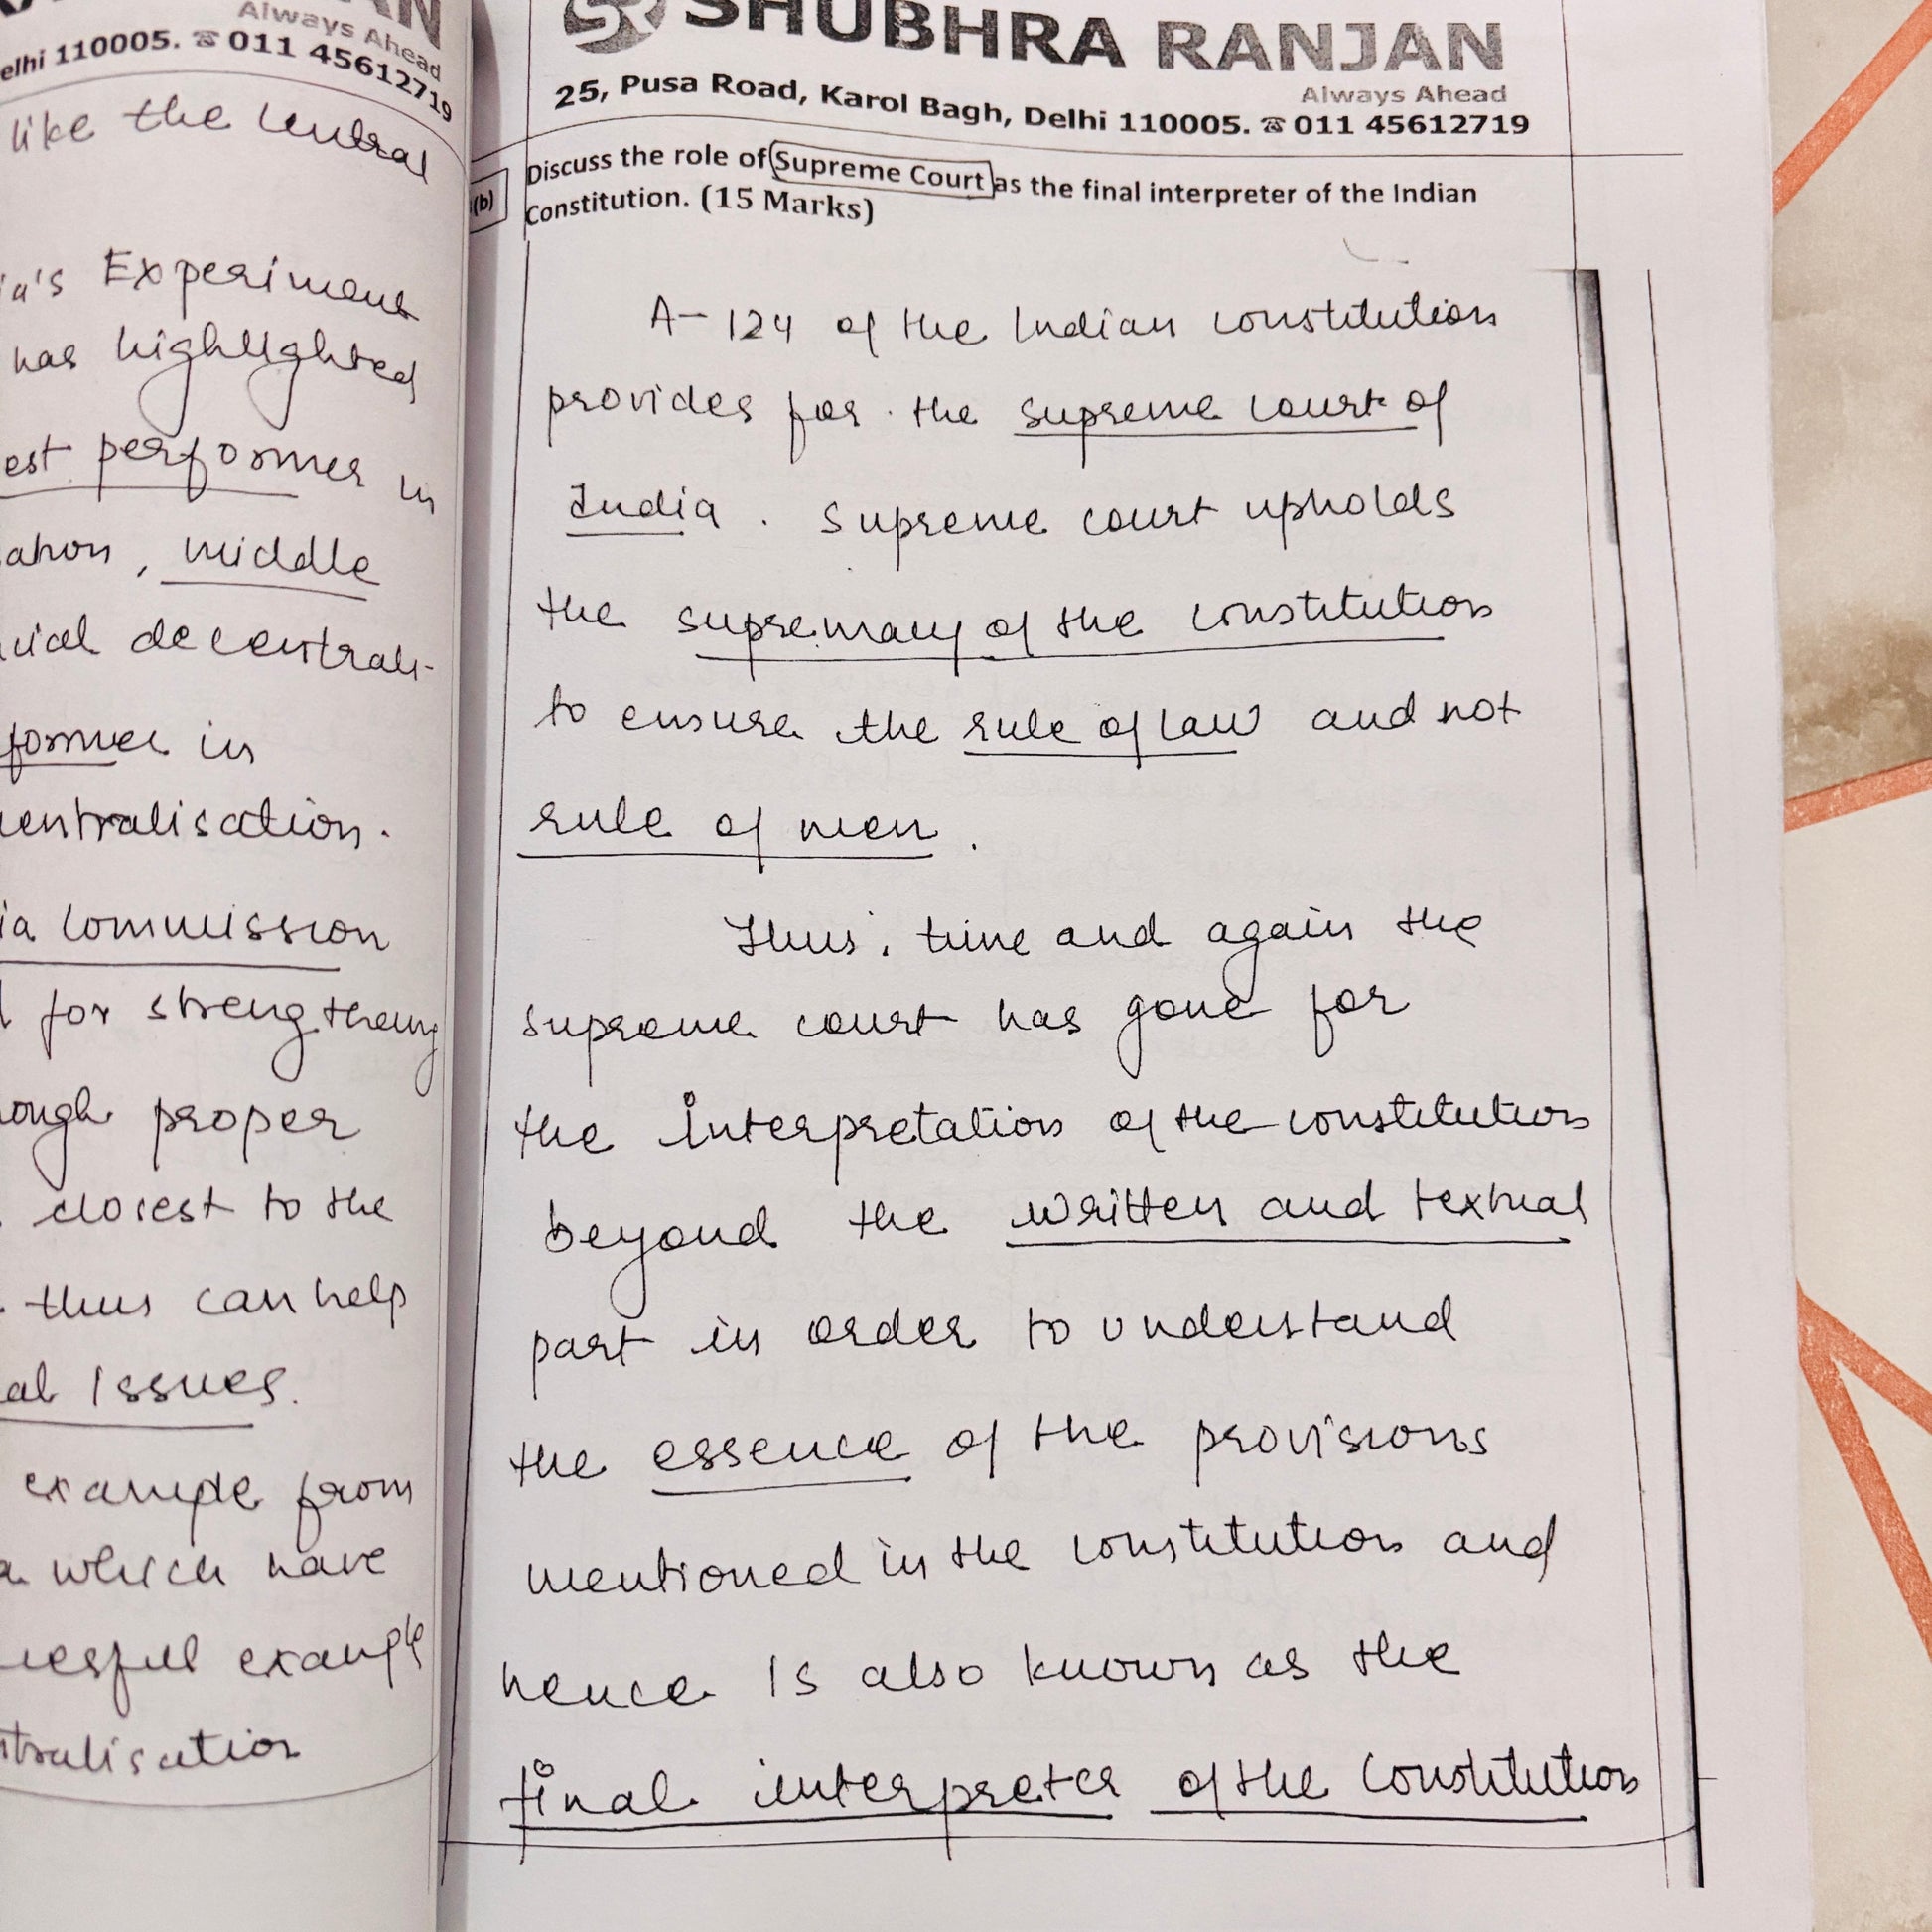 Always Ahead
elhi 110005. ☎ 011 45612719
like the central
ia's Experiment
has highlighted
est performer in
ation, middle
cial decentrali-
former in
centralisation.
ia commission
for strengthening
ough proper
closest to the
thus can help
al issues.
example from
which have
cessful example
ntralisation
SHUBHRA RANJAN
Always Ahead
25, Pusa Road, Karol Bagh, Delhi 110005. ☎ 011 45612719
(b) Discuss the role of Supreme Court as the final interpreter of the Indian
Constitution. (15 Marks)
A-124 of the Indian constitution
provides for the supreme court of
India. Supreme court upholds
the supremacy of the constitution
to ensure the rule of law and not
rule of men.
Thus, time and again the
supreme court has gone for
the interpretation of the constitution
beyond the written and textual
part in order to understand
the essence of the provisions
mentioned in the constitution and
hence is also known as the
final interpreter of the constitution